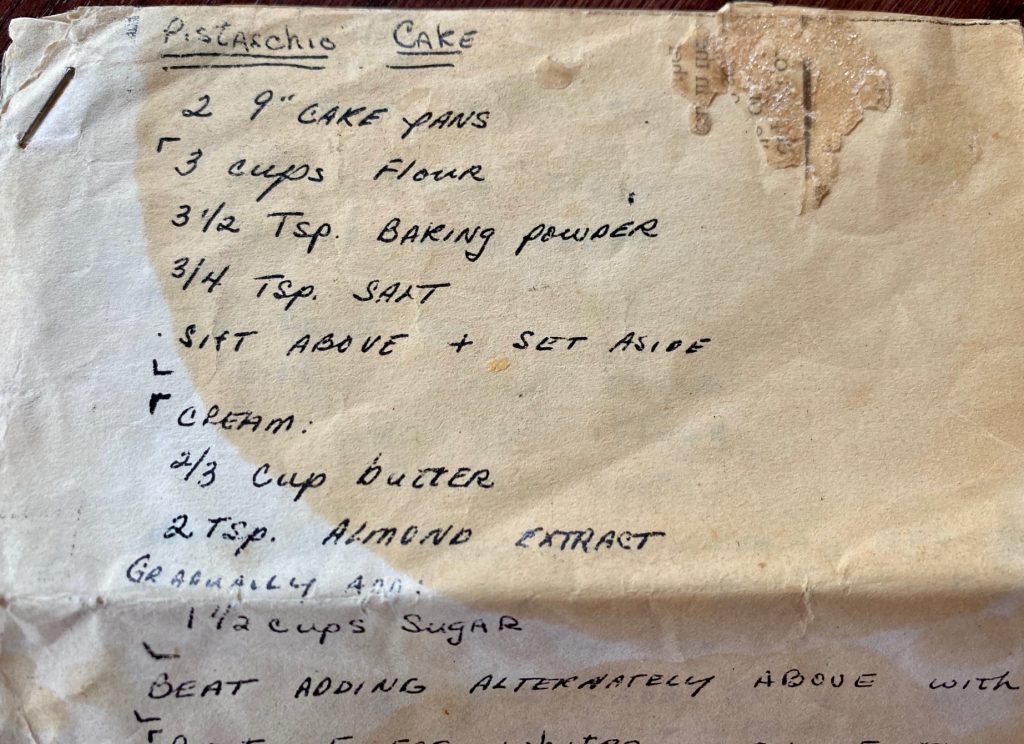 Pistaschio Cake
2 9" CAKE PANS
3 cups Flour
3 1/2 Tsp. BAKING POWDER
3/4 Tsp. SALT
Sift ABOVE + SET ASIDE
CREAM:
2/3 Cup butter
2 Tsp. ALMOND EXTRACT
GRADUALLY ADD:
1 1/2 cups SugAR
BEAT ADDING ALTERNATELY ABOVE with